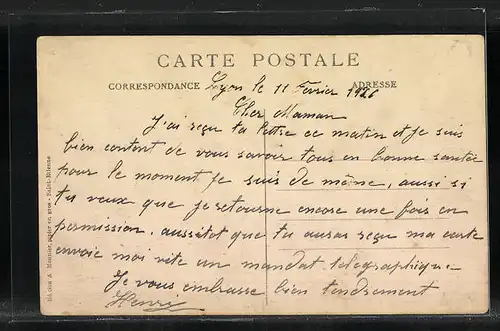 CARTE POSTALE
CORRESPONDANCE
ADRESSE
Lyon le 11 Février 1926
Cher Maman
J'ai reçu ta lettre ce matin et je suis
bien content de vous savoir tous en bonne santée
pour le moment je suis de même, aussi si
tu veux que je retourne encore une fois en
permission. aussitot que tu auras reçu ma carte
envoie moi vite un mandat télégraphique.
Je vous embrasse bien tendrement
Henri
A. Meunier, papier en gros - Saint-Etienne